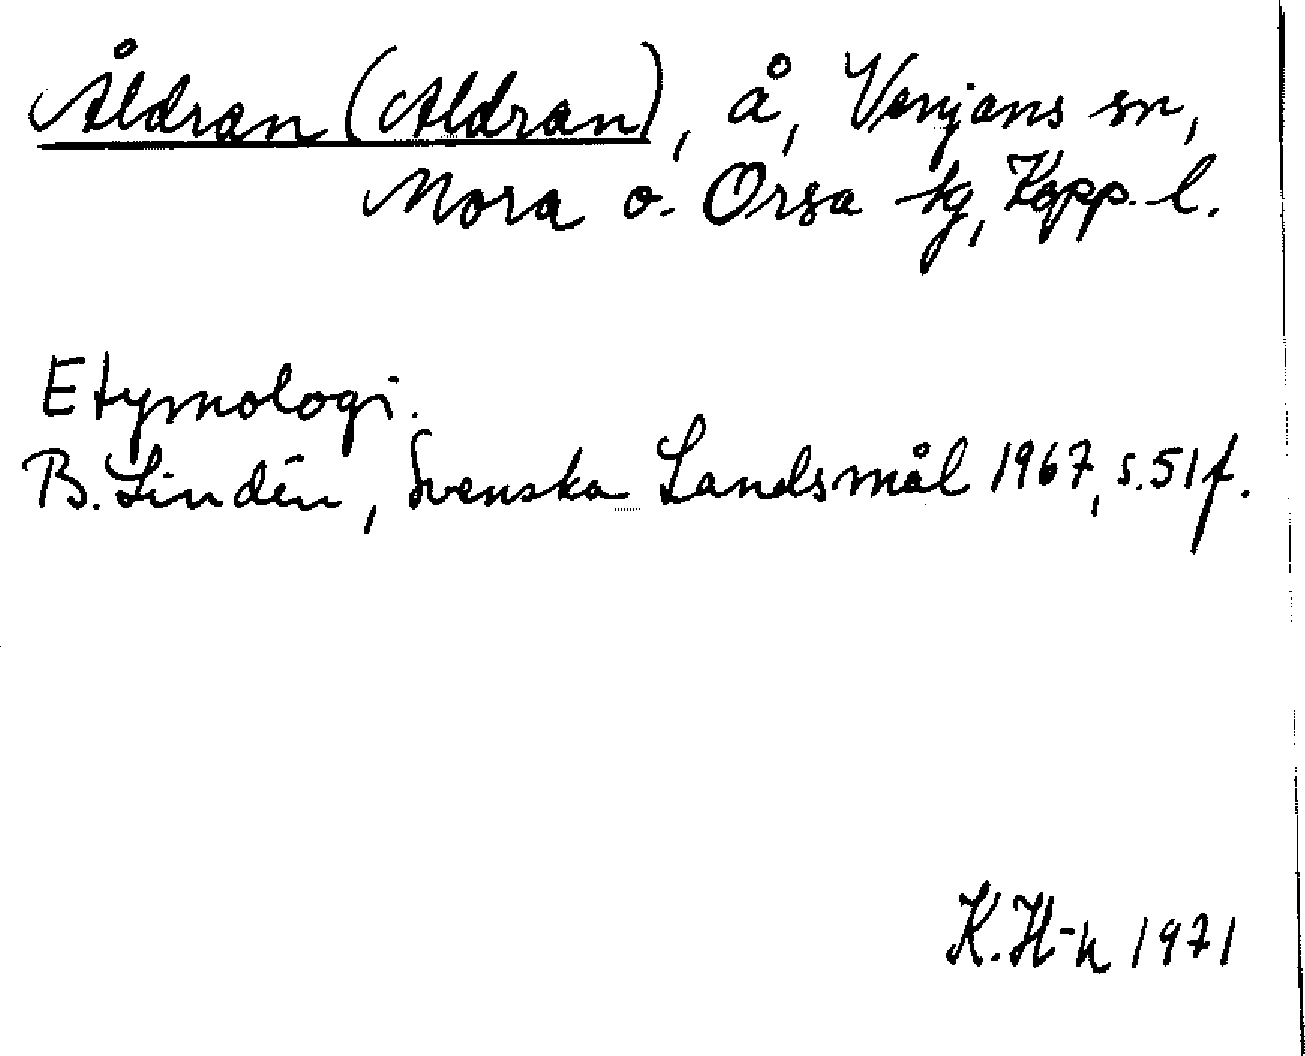 Åldran (Aldran), å, Venjans sn,
Mora o. Orsa tg, Kopp. l.
Etymologi.
B. Lindén, Svenska Landsmål 1967, s. 51 f.
K. H-k 1971